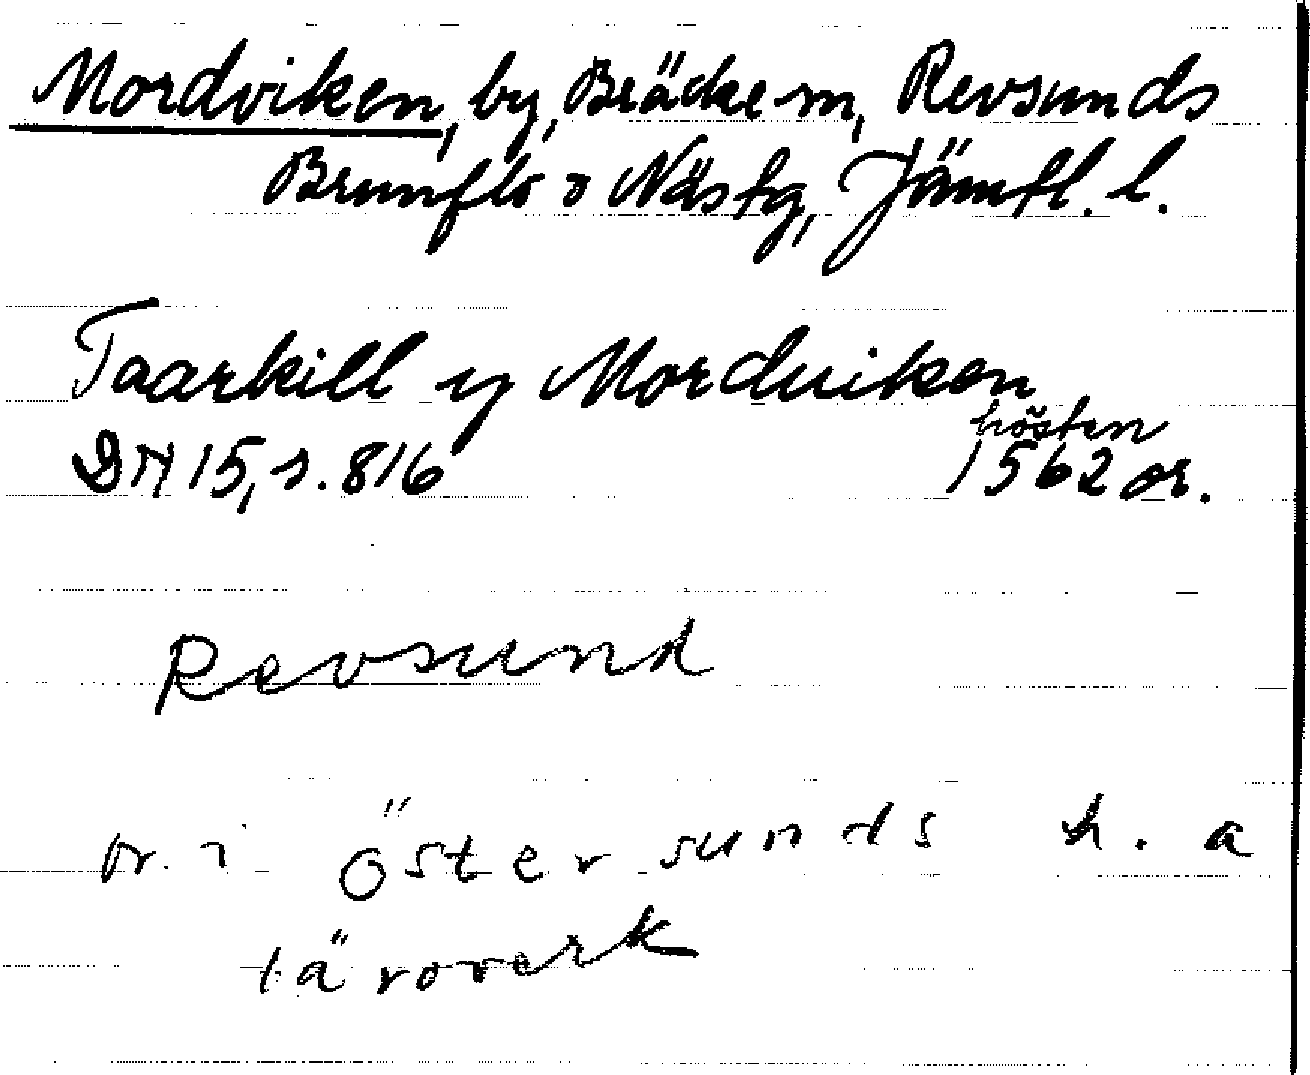 Mordviken, by, Bräcke sn, Revsunds
Brunflo o Näs tg, Jämtl. l.
Taarkill y Morduiken
hösten
DN 15, s. 816 1562 or.
Revsund
or. i Östersunds h. a
läroverk